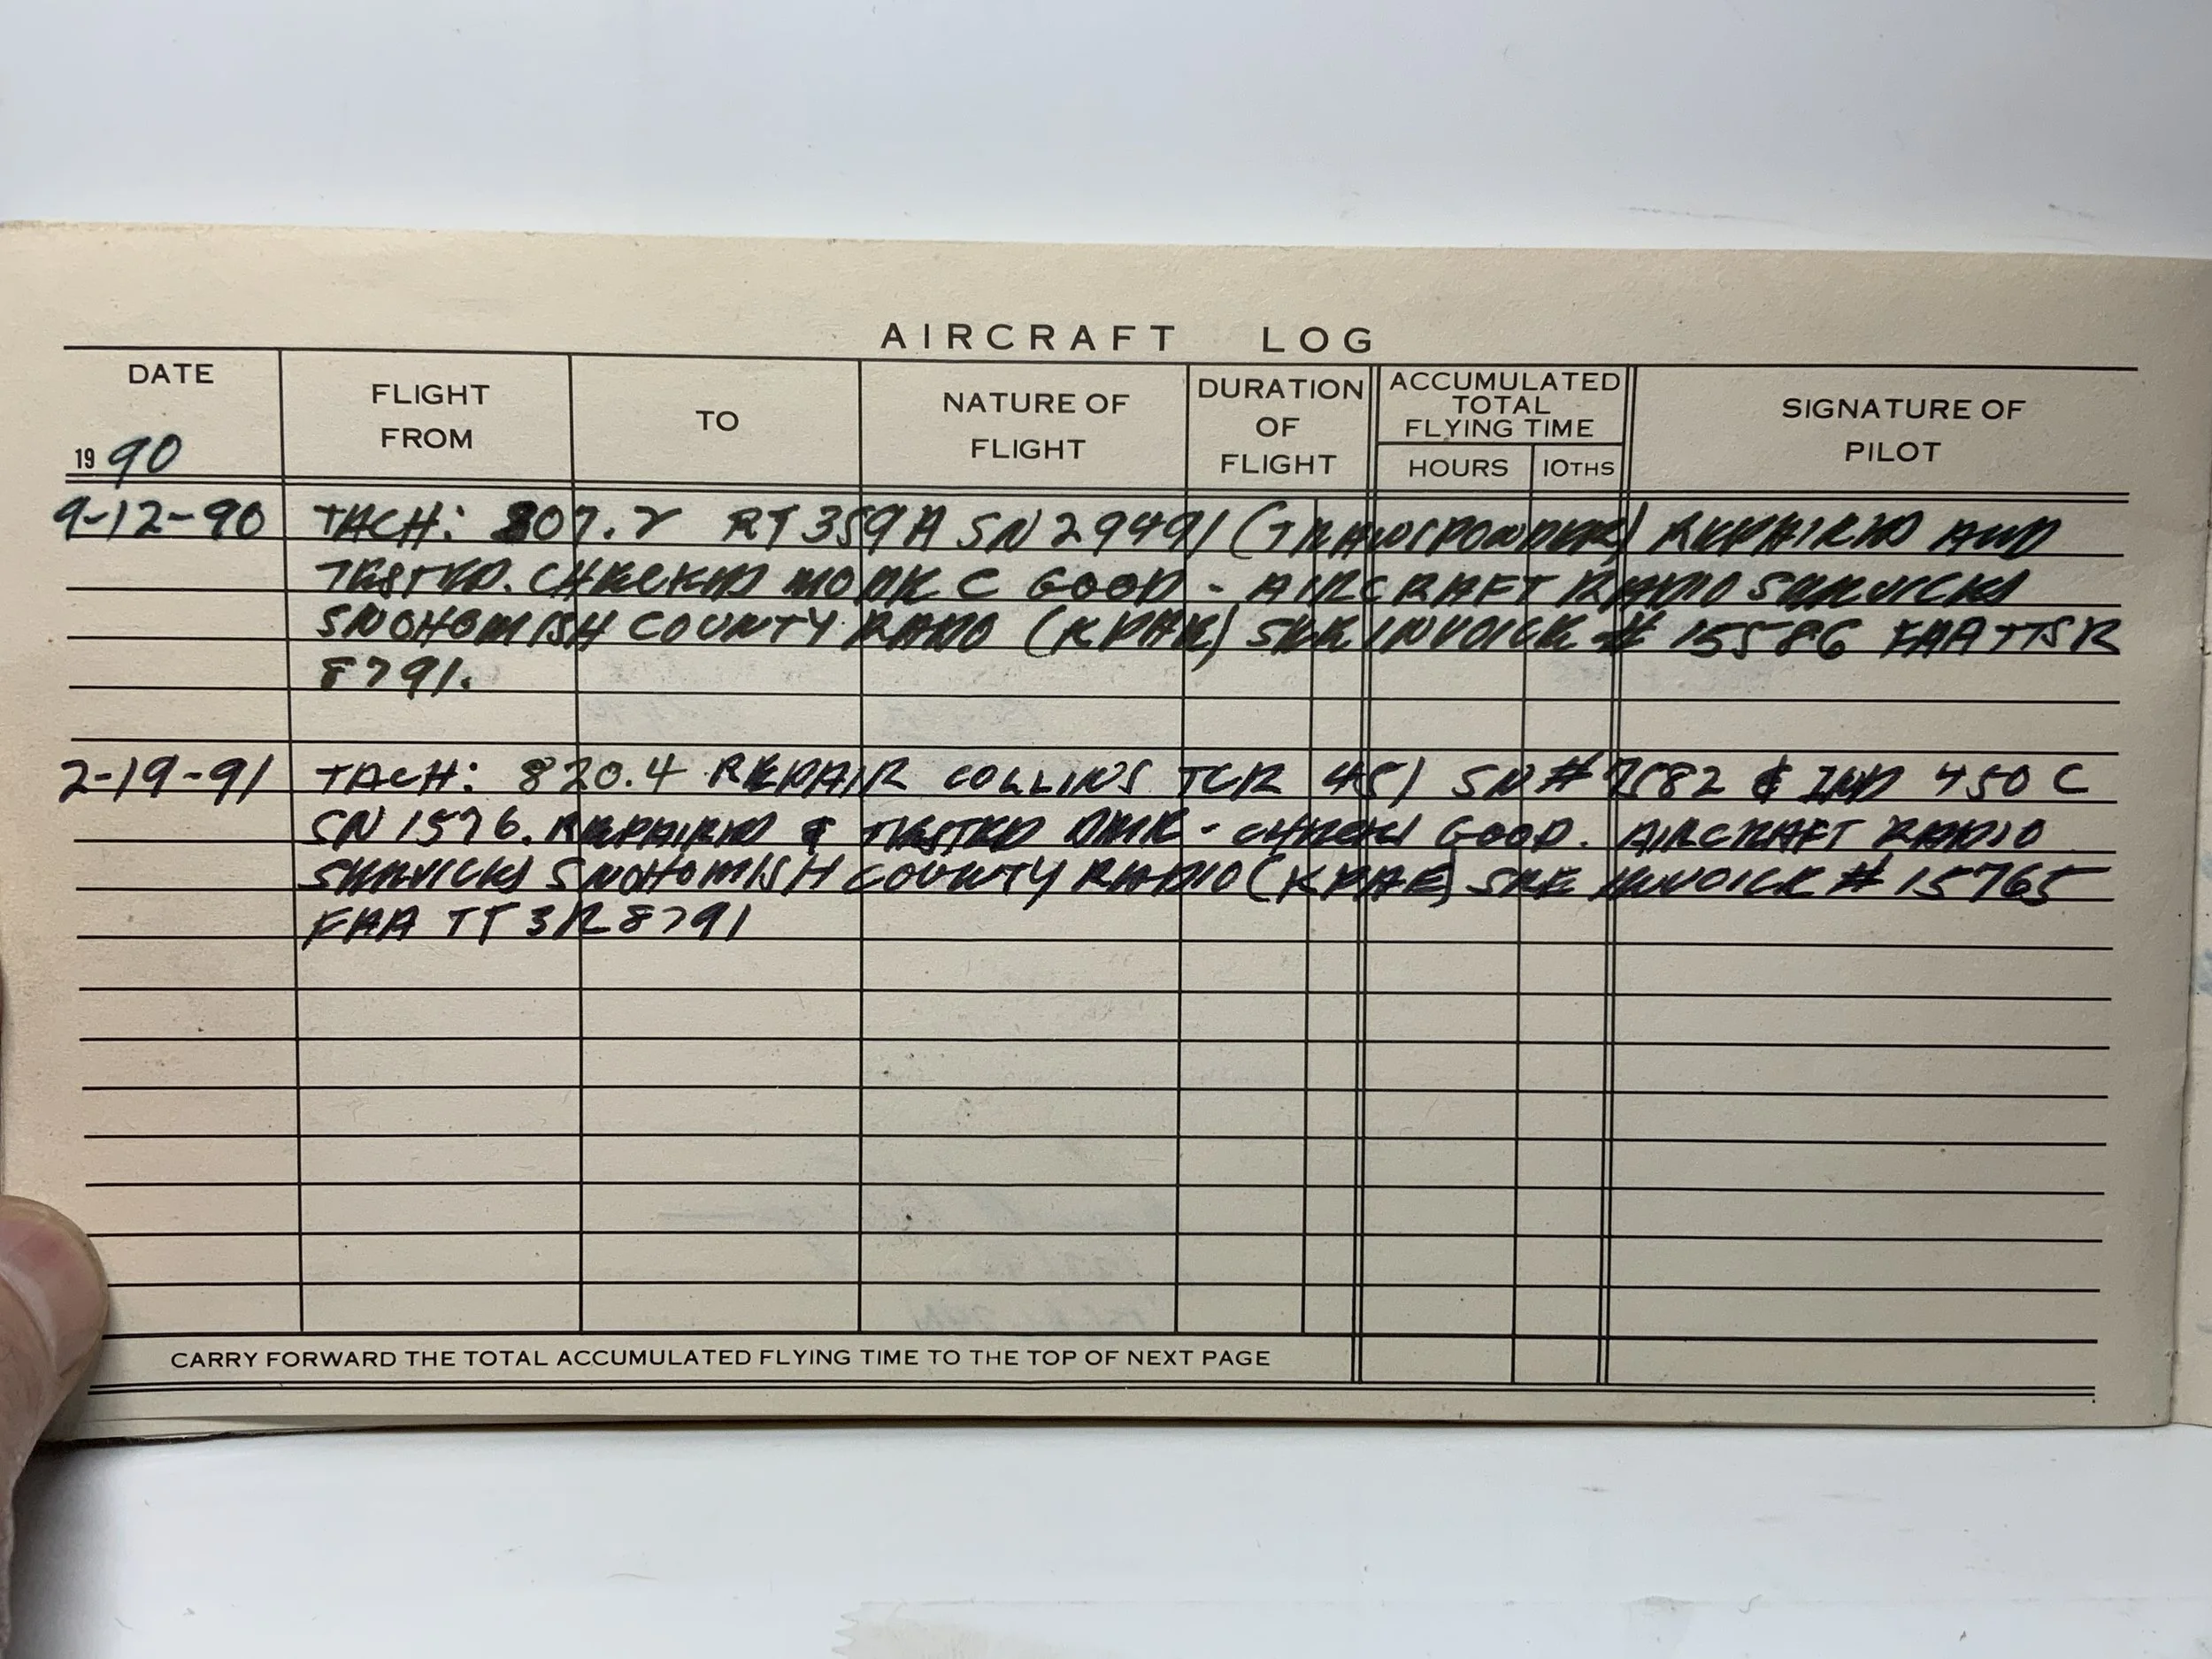 AIRCRAFT LOG
DATE
FLIGHT FROM
TO
NATURE OF FLIGHT
DURATION OF FLIGHT
ACCUMULATED TOTAL FLYING TIME
HOURS
10THS
SIGNATURE OF PILOT
19 90
9-12-90 TACH: 807.2 RT359A SN 29491 (TRANSPONDER) REPAIRED AND
TESTED. CHECKED MODE C GOOD - AIRCRAFT RADIO SERVICES
SNOHOMISH COUNTY RADIO (KPAE) SEE INVOICE # 15586 FAA TTSR
8791.
2-19-91 TACH: 820.4 REPAIR COLLINS TCR 451 SN # 7582 & IND 450 C
SN 1576. REPAIRED & TESTED DME - CHECKS GOOD. AIRCRAFT RADIO
SERVICES SNOHOMISH COUNTY RADIO (KPAE) SEE INVOICE # 15765
FAA TT3R 8791
CARRY FORWARD THE TOTAL ACCUMULATED FLYING TIME TO THE TOP OF NEXT PAGE